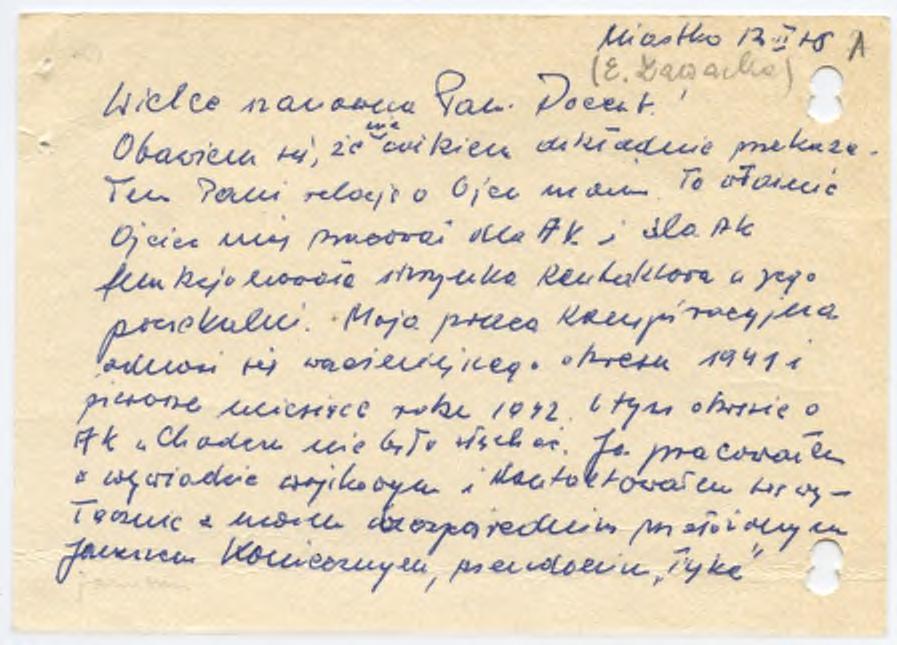 Miastko 12 II 78 A
(E. Zawacka)
Wielce szanowna Pani Docent!
Obawiem się, że nie wnikiem dokładnie przekaza-
łem Pani relację o Ojcu moim. To właśnie
Ojciec mój pracował dla AK i dla AK
funkcjonowała skrzynka kontaktowa u jego
piekarni. Moja praca konspiracyjna
odnosi się wcześniejszego okresu 1941 i
pierwsze miesiące roku 1942. W tym okresie o
AK w Chodczu nie było słychać. Ja pracowałem
w wywiadzie wojskowym i kontaktowałem się wy-
łącznie z moim bezpośrednim przełożonym
Janem Koniecznym, pseudonim „Tyka"